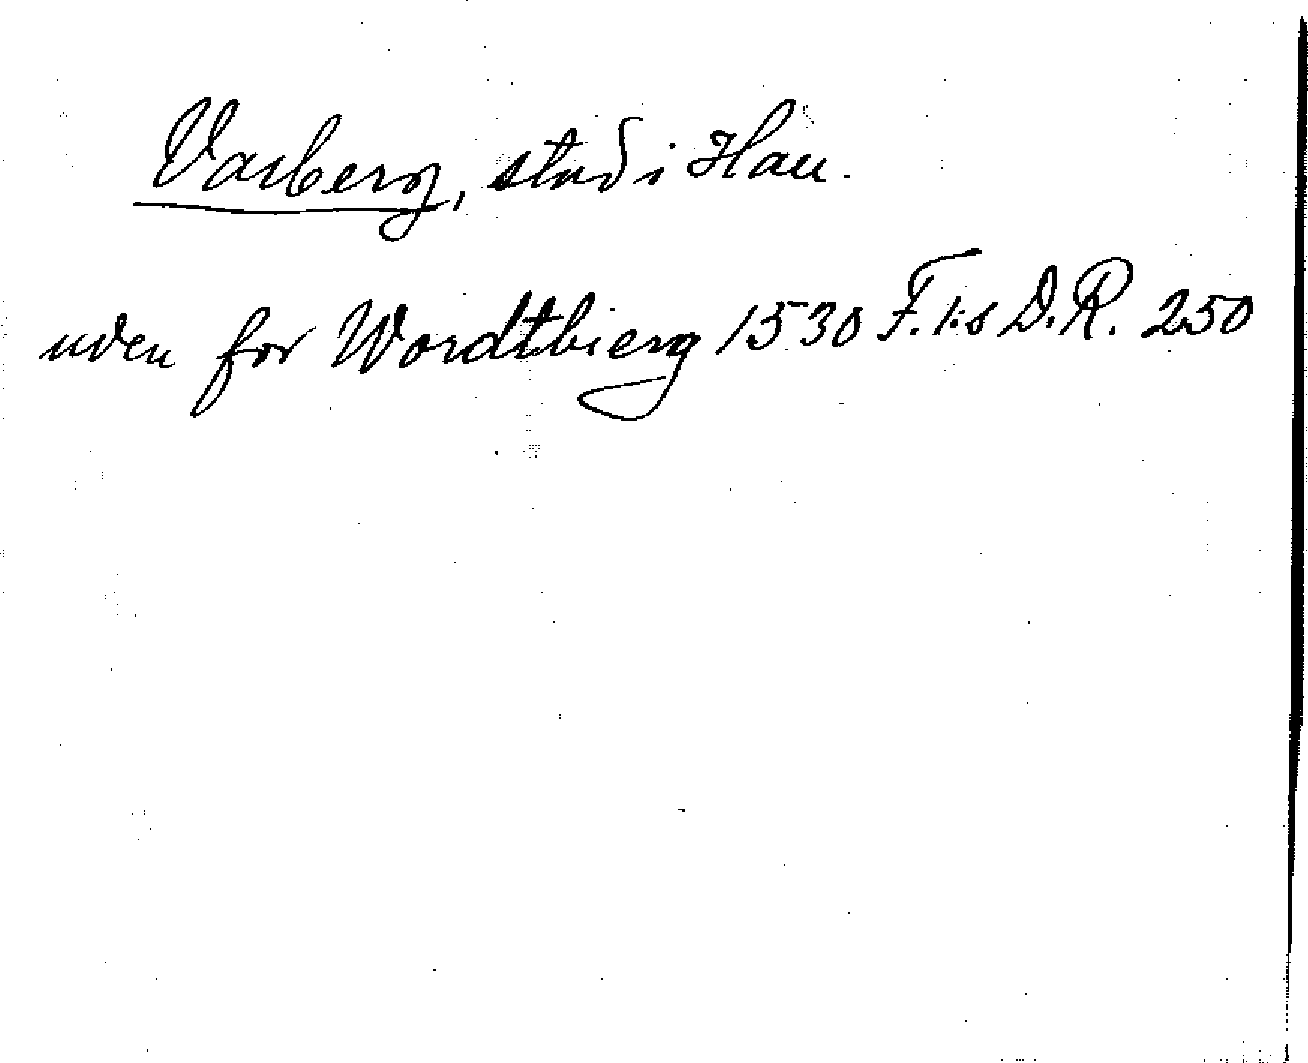 Varberg, stad i Hall.
uden for Wordtbierg 1530 F.I:s D.R. 250